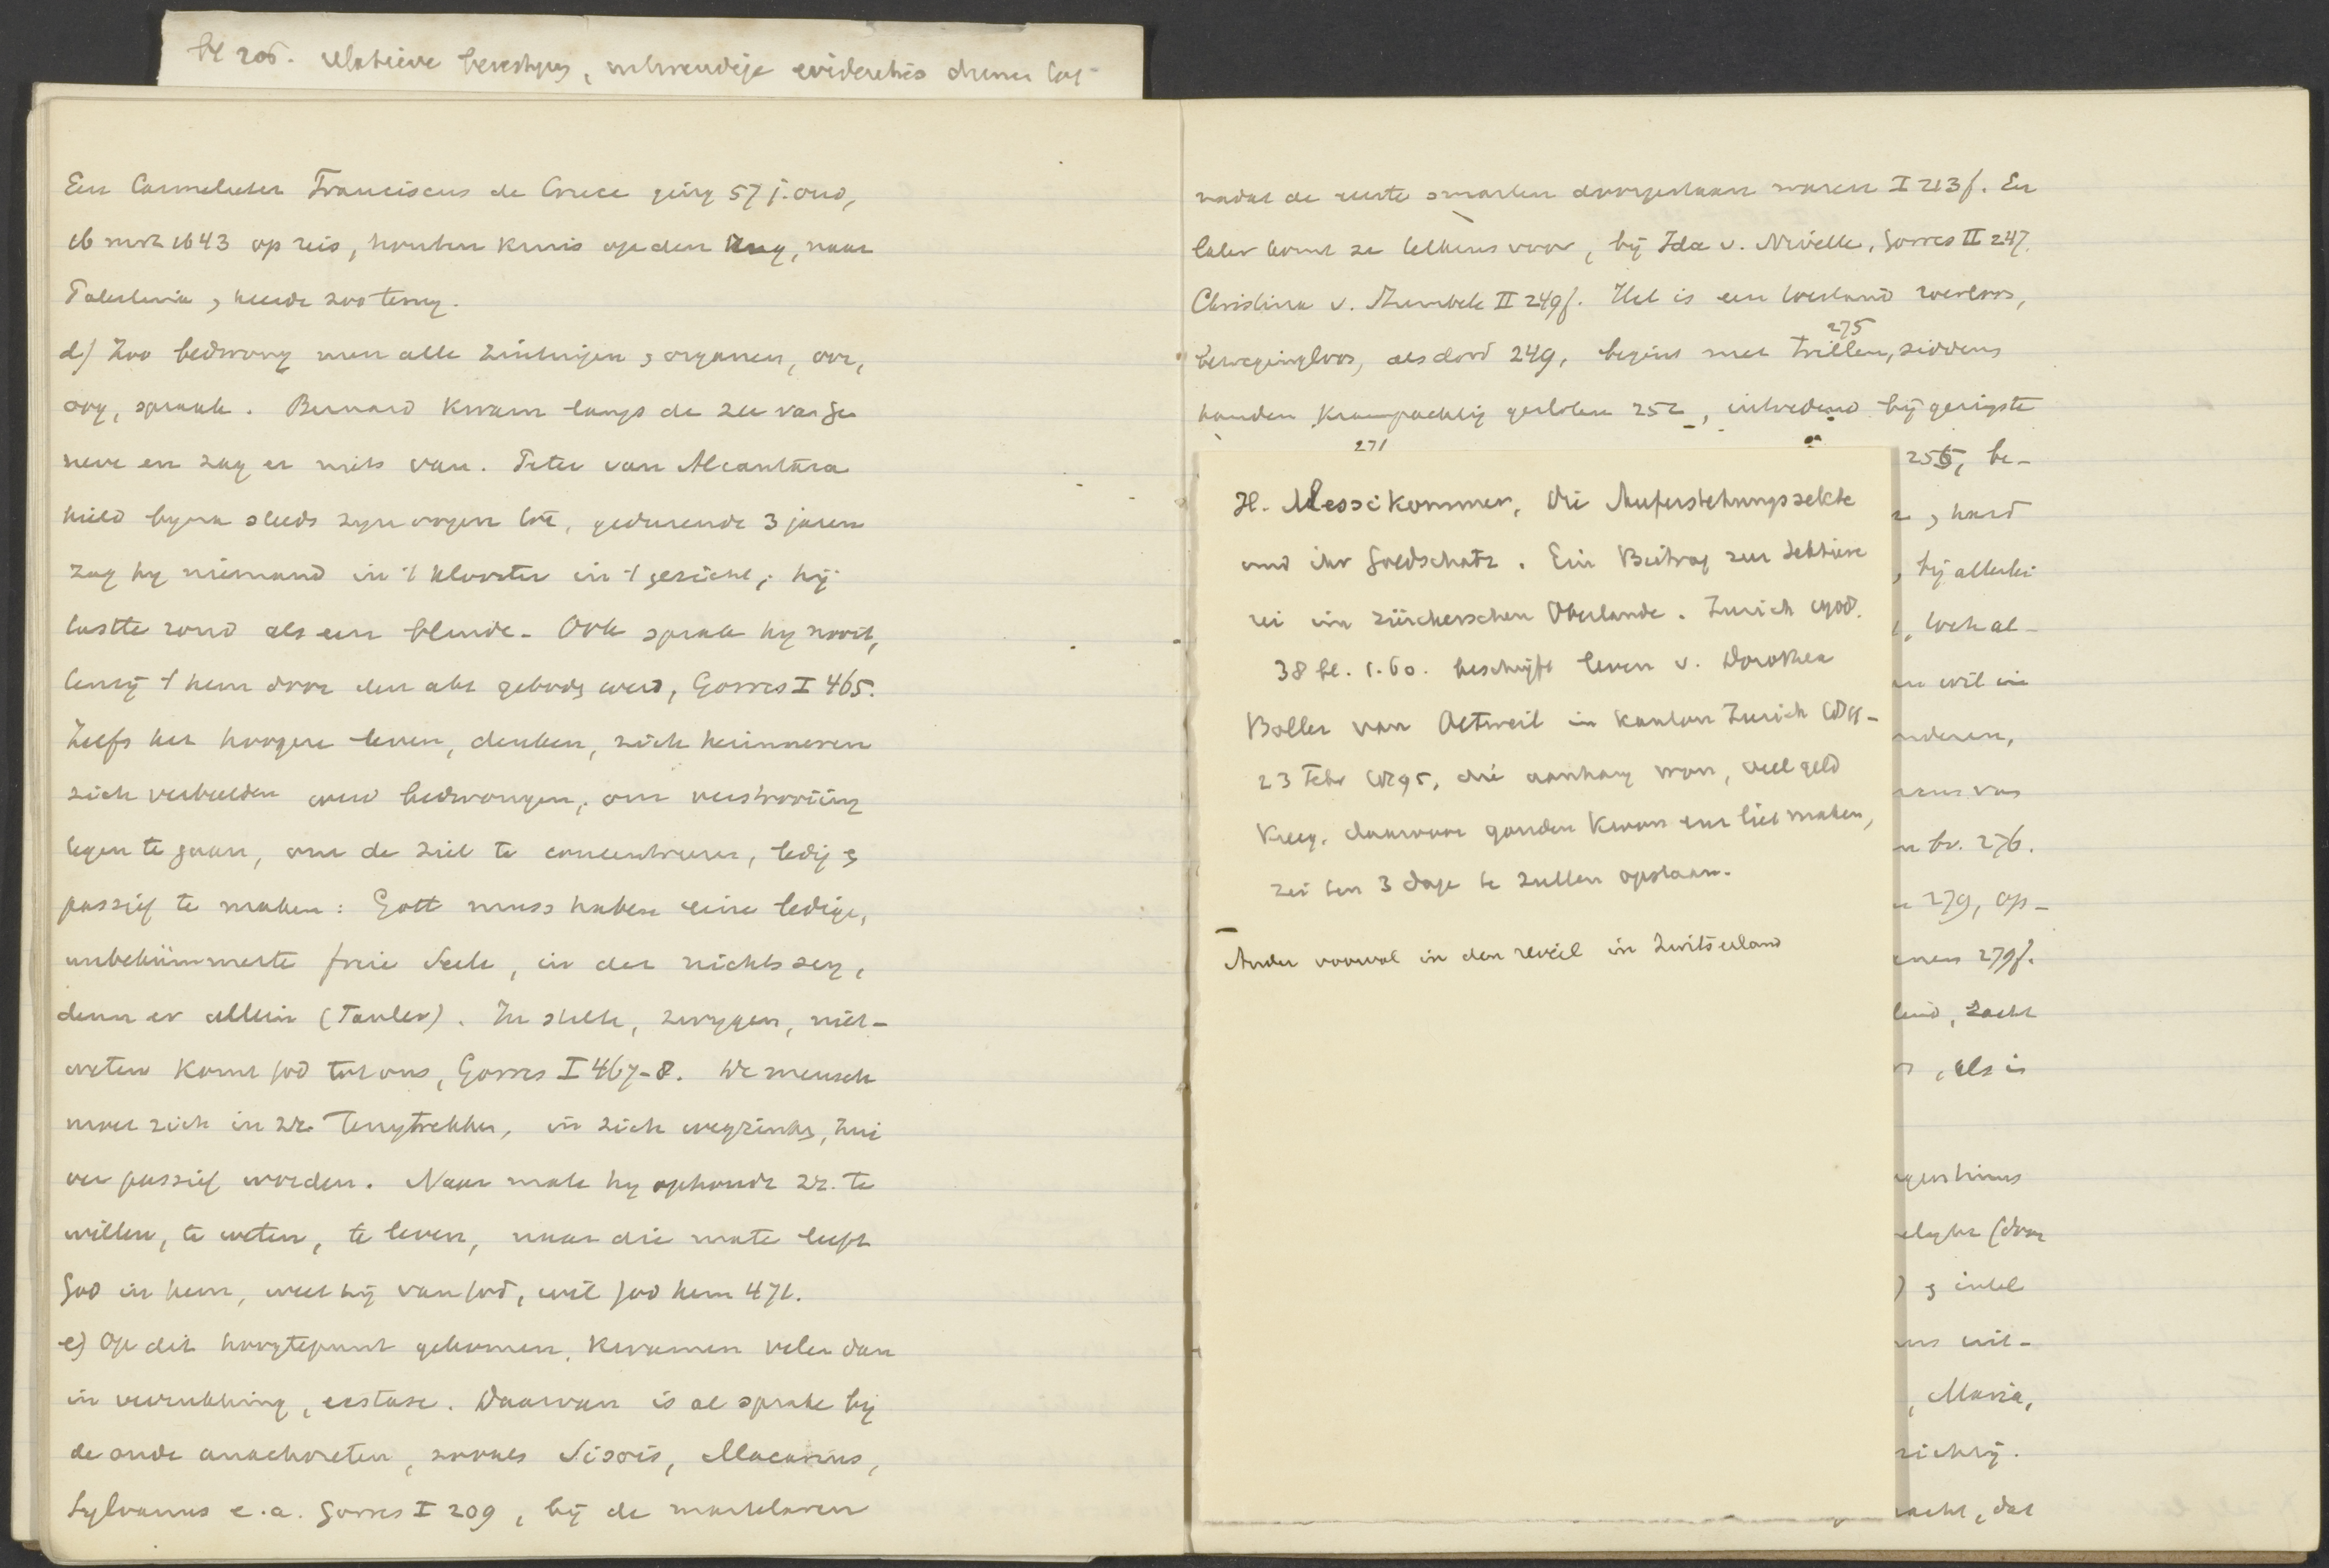 bl 205. relatieve
Een Carmelieter Franciscus de Cruce ging 57 j. oud,
16 mrt 1643 op reis, houten kruis op den rug, naar
Palestina, keerde zoo terug.
d) Zoo bedwong men alle zintuigen & organen, oor,
oog, spraak. Bernard kwam langs de zee van Ge
neve en zag er niets van. Peter van Alcantara
hield byna steeds zyn oogen toe, gedurende 3 jaren
zag hy niemand in 't klooster in 't gezicht, hij
tastte rond als een blinde. Ook sprak hy nooit,
tenzij 't hem door den abt geboden werd, Görres I 465.
Zelfs het hoogere leven, denken, zich herinneren
zich verbeelden werd bedwongen, om verstrooiing
tegen te gaan, om de ziel te concentreren, ledig &
passief te maken: Gott muss haben eine ledige,
unbekümmerte freie Seele, in der nichts sey,
denn er allein (Tauler). In stilte, zwygen, niet-
weten komt God tot ons, Görres I 467-8. De mensch
moet zich in zr. terugtrekken, in zich wegzinken, zui
ver passief worden. Naar mate hy ophoudt zr. te
willen, te weten, te leven, naar die mate leeft
God in hem, weet hij van God, wil God hem 471.
e) Op dit hoogtepunt gekomen, kwamen velen dan
in verrukking, ecstase. Daarvan is al sprake bij
de oude anachoreten, zooals Sisois, Macarius,
Sylvanus e.a. Görres I 209, bij de martelaren
nadat de eerste smarten doorgestaan waren I 213f. En
later komt ze telkens voor, bij Ida v. Nivelle, Görres II 247.
Christina v. II 249f. Het is een toestand roerloos,
275
bewegingloos, als dood 249, begint met trillen, sidderen
handen krampachtig gesloten 252, intredend bij geringste
271
H. Messikommer, Die Auferstehungssekte
und ihr Goldschatz. Ein Beitrag zur Sektiere
rei im zürcherschen Oberlande. Zurich 1908.
38 bl. 1.60. beschrijft leven v. Dorothea
Boller van Oetweil in kanton Zurich
23 Febr 1895, die aanhang won, veel geld
kreeg, daarvoor gouden kroon liet maken,
zei ten 3 dage te zullen opstaan.
Ander voorval in den reveil in Zwitserland
256, be-
, hard
, bij allerlei
, toch al-
wil in
anderen,
br. 276.
279, op-
279f.
, zacht
, als in
(door
) & intel
uit-
, Maria,
, dat